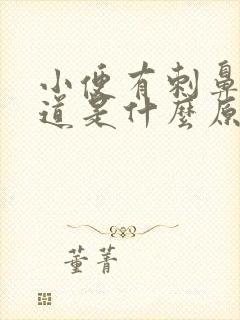 小便有刺鼻
道是什麼原
董菁